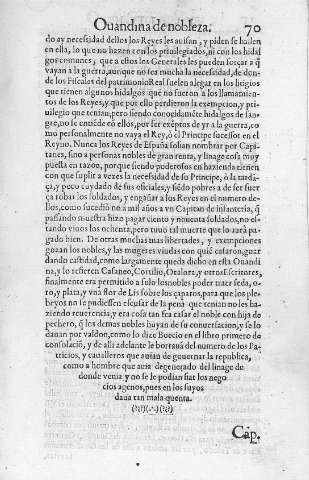 Ouandina de nobleza. 70
do ay necesidad dellos los Reyes les auisan, y piden se hallen
en ella, lo que no hazen con los priuilegiados, ni con los hidal
gos comunes, que a ellos los Generales les pueden forçar a q̃
vayan a la guerra, aunque no sea mucha la necesidad, de don-
de los Fiscales del patrimonio Real suelen alegar en los litigios
que tienen algunos hidalgos que no fueron a los llamamien-
tos de los Reyes, y que por ello perdieron la exempcion, y pri-
uilegio que tenian, pero siendo conocidamẽte hidalgos de san-
gre, no se entiẽde cõ ellos, por ser exẽptos de yr a la guerra, co
mo personalmente no vaya el Rey, ò el Principe sucessor en el
Reyno. Nunca los Reyes de España solian nombrar por Capi-
tanes, sino a personas nobles de gran renta, y linage cosa muy
puesta en razon, porque siendo poderosos en hazienda tienen
con que suplir a vezes la necesidad de su Principe, ò la tardã-
ça, y poco cuydado de sus oficiales, y siẽdo pobres a de ser fuer
ça robar los soldados, y engañar a los Reyes en el numero de-
llos, como sucediò no a mil años a vn Capitan de infanteria, q̃
passando muestra hizo pagar ciento y nouenta soldados, no el-
tando viuos los ochenta, pero tuuo tal muerte que lo aurà pa-
gado bien. De otras muchas mas libertades, y exempciones
gozan los nobles, y las mugeres viudas con quiẽ casaron, guar
dando castidad, como largamente queda dicho en esta Ouandi
na, y lo refieren Casaneo, Cotulio, Otalora, y otros Escritores,
finalmente era permitido a solo los nobles poder traer seda, o-
ro, y plata, y vna flor de Lis sobre los çapatos, para que los ple-
beyos no se pudiessen escusar de la pena que tenian no les ha-
ziendo reuerencia, y era cosa tan fea casar el noble con hija de
pechero, q̃ los demas nobles huyan de su conuersacion, y se lo
dauan por valdon, como lo dize Boecio en el libro primero de
consolaciõ, y de alli adelante le borrauã del numero de los Pa-
tricios, y caualleros que auian de gouernar la republica,
como a hombre que auia degenerado del linage de
donde venia y no se le podian fiar los nego
cios agenos, pues en los suyos
daua tan mala quenta.
Cap.